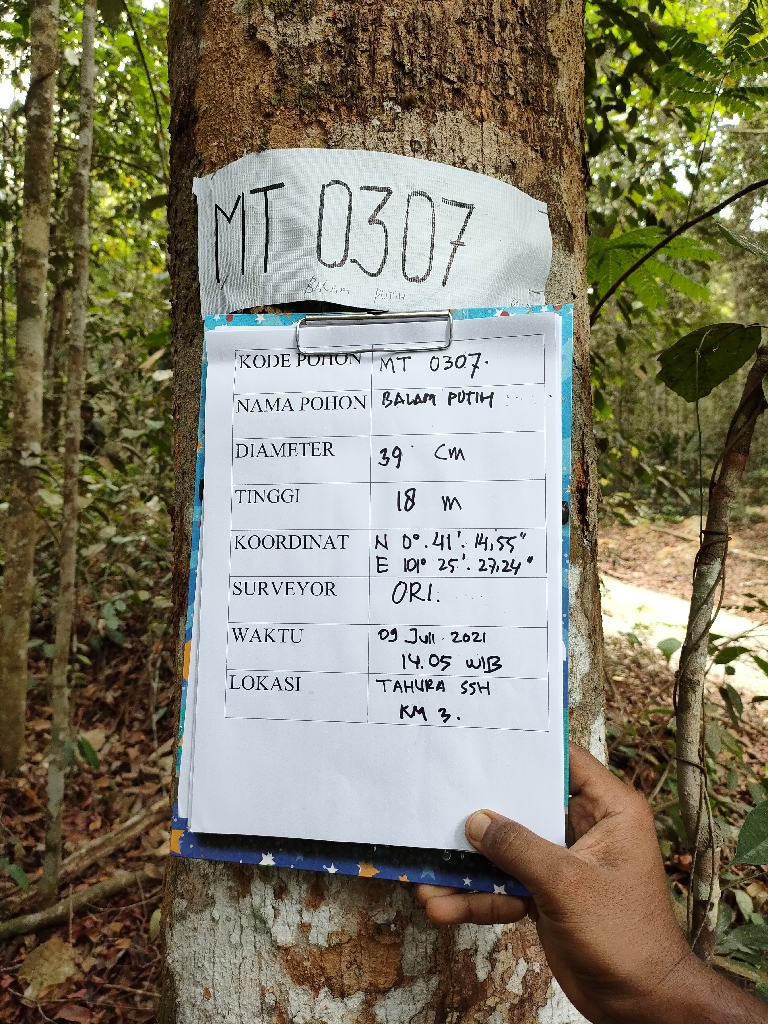 MT 0307
BALAM PUTIH
KODE POHON MT 0307.
NAMA POHON BALAM PUTIH
DIAMETER 39 cm
TINGGI 18 m
KOORDINAT N 0°. 41'. 14,55"
E 101° 25'. 27,24"
SURVEYOR ORI.
WAKTU 09 Juli 2021
14.05 WIB
LOKASI TAHURA SSH
KM 3.